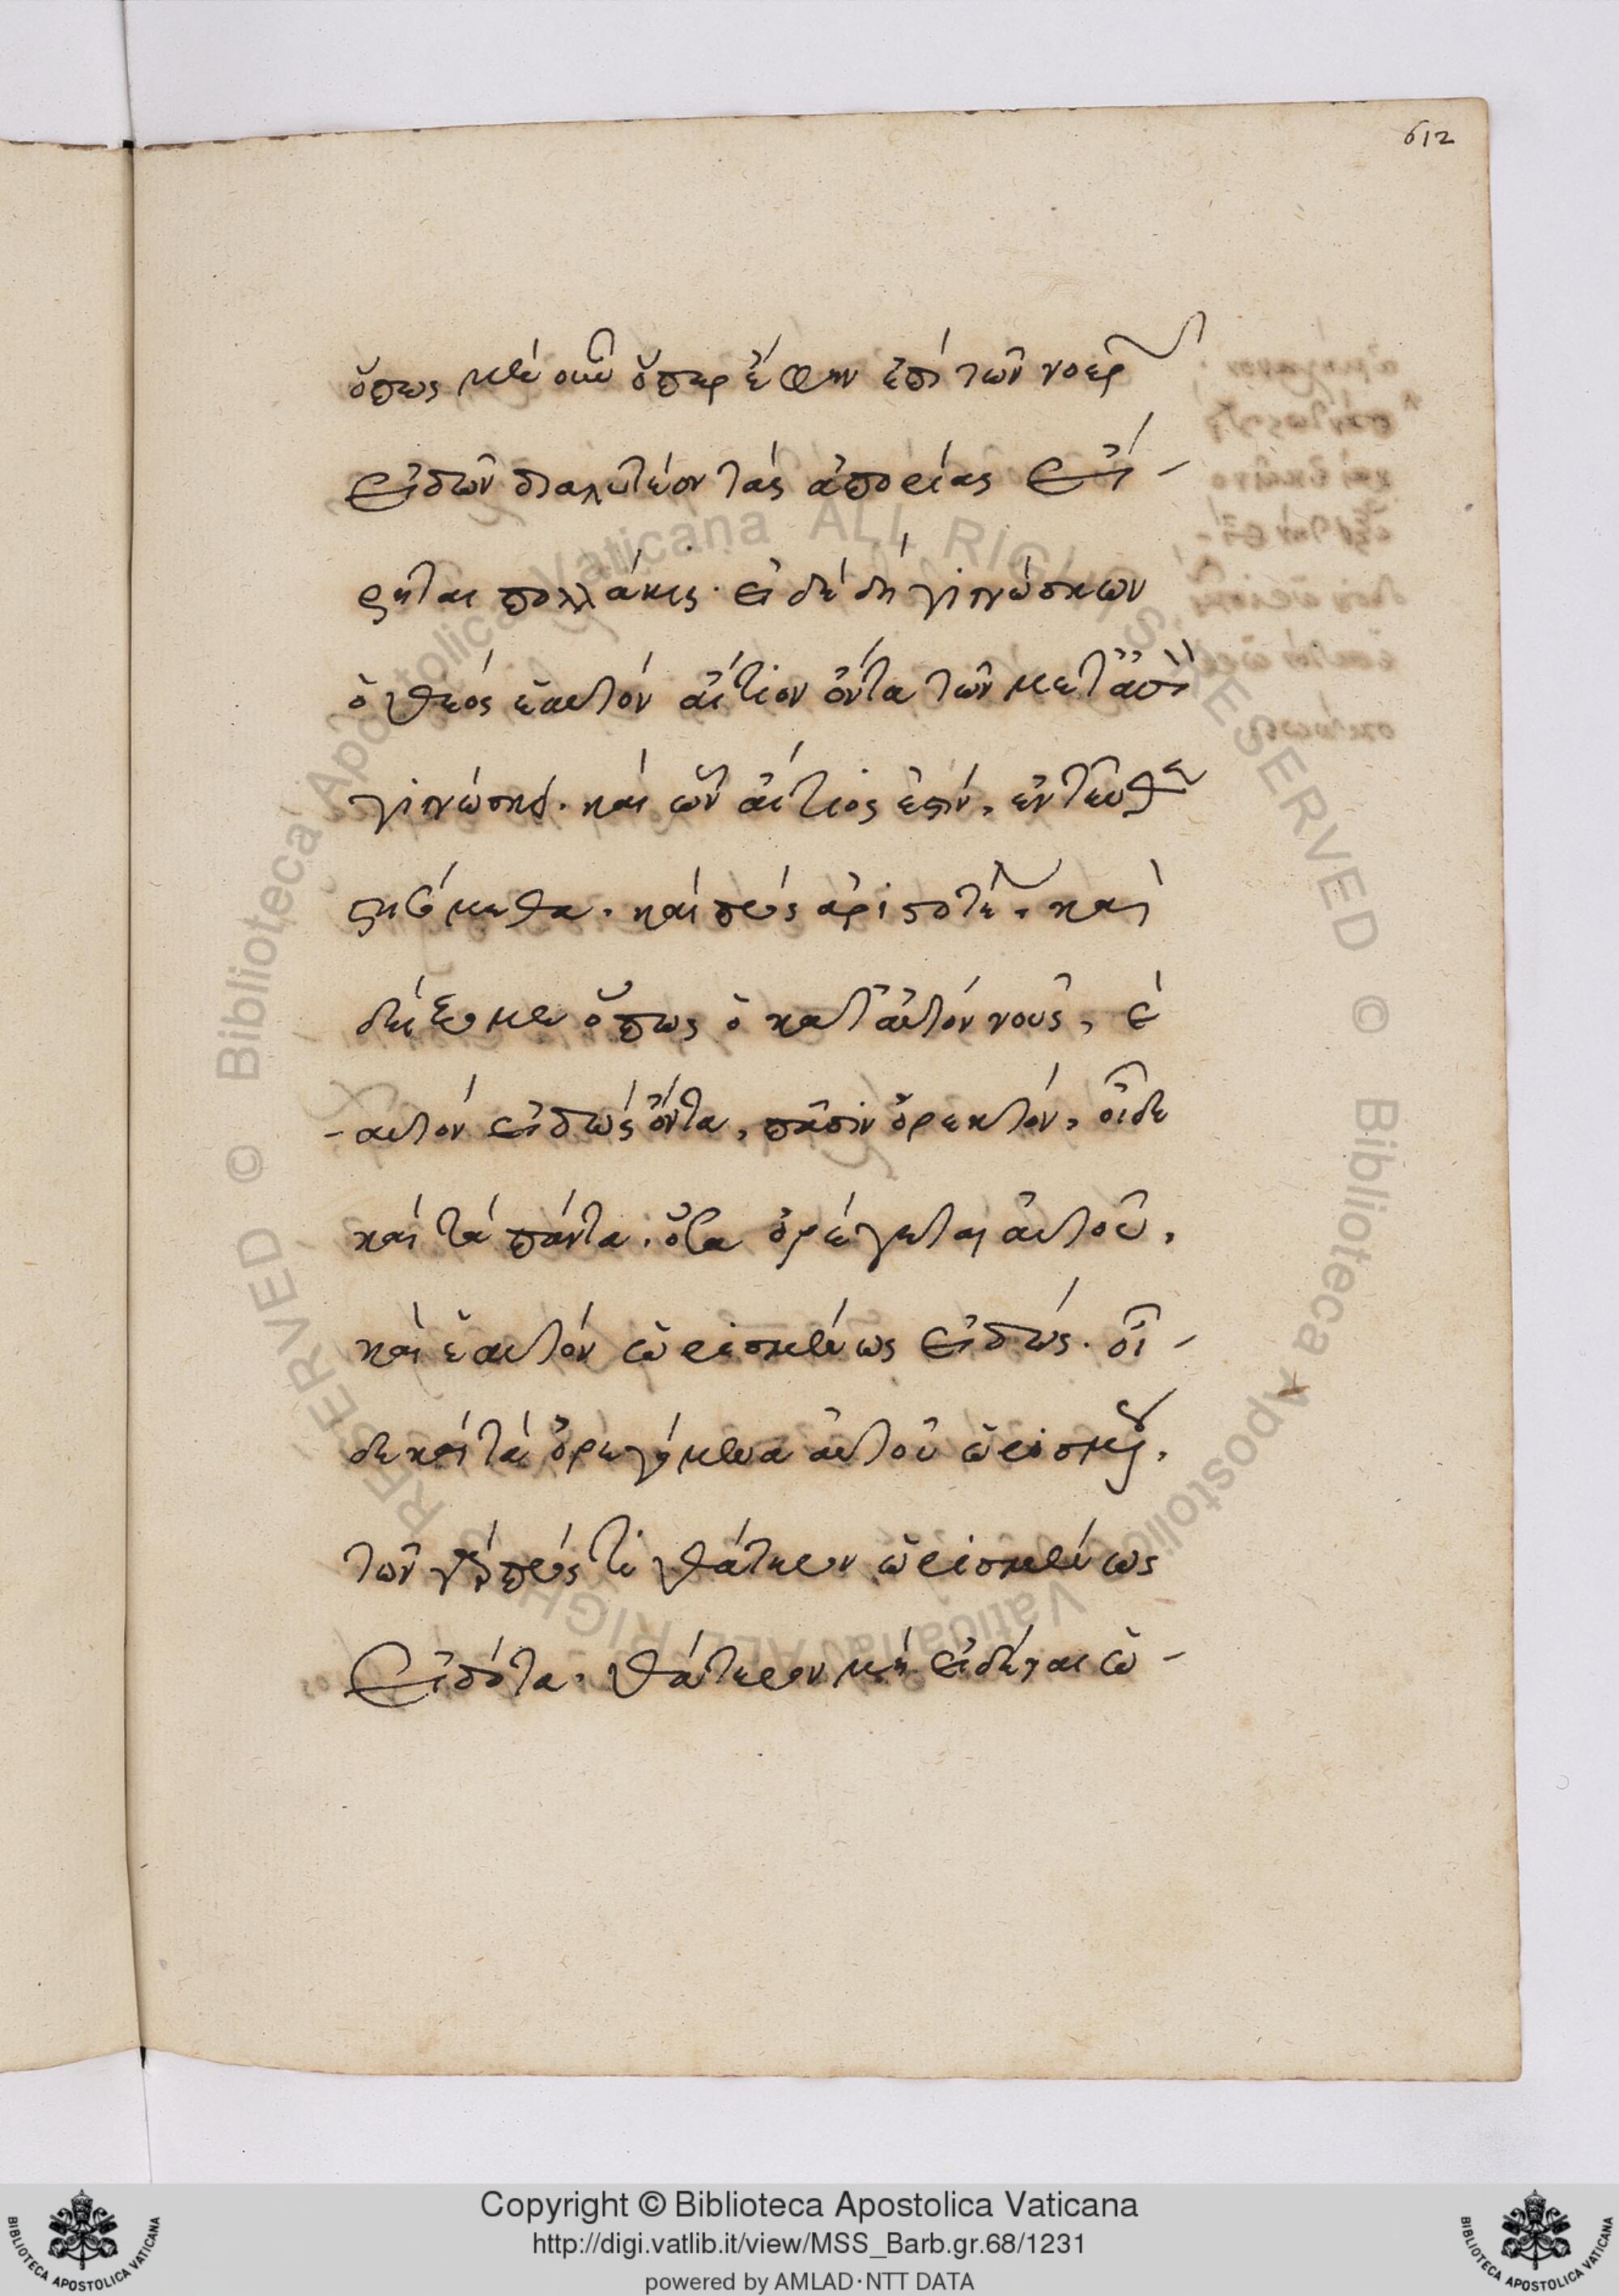 612
ὅπως μὲν οὖν ὅπερ ἔφην ἐπὶ τῶν νοερ
εἰδῶν διαλυτέον τὰς ἀπορίας εἴ-
ρηται πολλάκις. εἰ δὲ δὴ γινώσκων
ὁ θεὸς ἑαυτὸν αἴτιον ὄντα τῶν μετ' αὐτὸ
γινώσκει. καὶ ὧν αἴτιός ἐστιν, ἐντεῦθεν
στησόμεθα. καὶ πρὸς ἀριστοτέ. καὶ
δείξομεν ὅπως ὁ κατ' αὐτὸν νοῦς, ἑ
-αυτὸν εἰδὼς ὄντα, πᾶσιν ὀρεκτὸν, οἶδε
καὶ τὰ πάντα. ὅσα ὀρέγεται αὐτοῦ,
καὶ ἑαυτὸν ὡρισμένως εἰδώς. οἶ-
δε καὶ τὰ ὀρεγόμενα αὐτοῦ ὡρισμένως,
τῶν γὰρ πρός τι θάτερον ὡρισμένως
εἰδότα. θάτερον μὴ εἰδέναι ὡ-
Copyright © Biblioteca Apostolica Vaticana
http://digi.vatlib.it/view/MSS_Barb.gr.68/1231
powered by AMLAD·NTT DATA
BIBLIOTECA APOSTOLICA VATICANA
BIBLIOTECA APOSTOLICA VATICANA
© Biblioteca Apostolica Vaticana ALL RIGHTS RESERVED
© Biblioteca Apostolica Vaticana ALL RIGHTS RESERVED